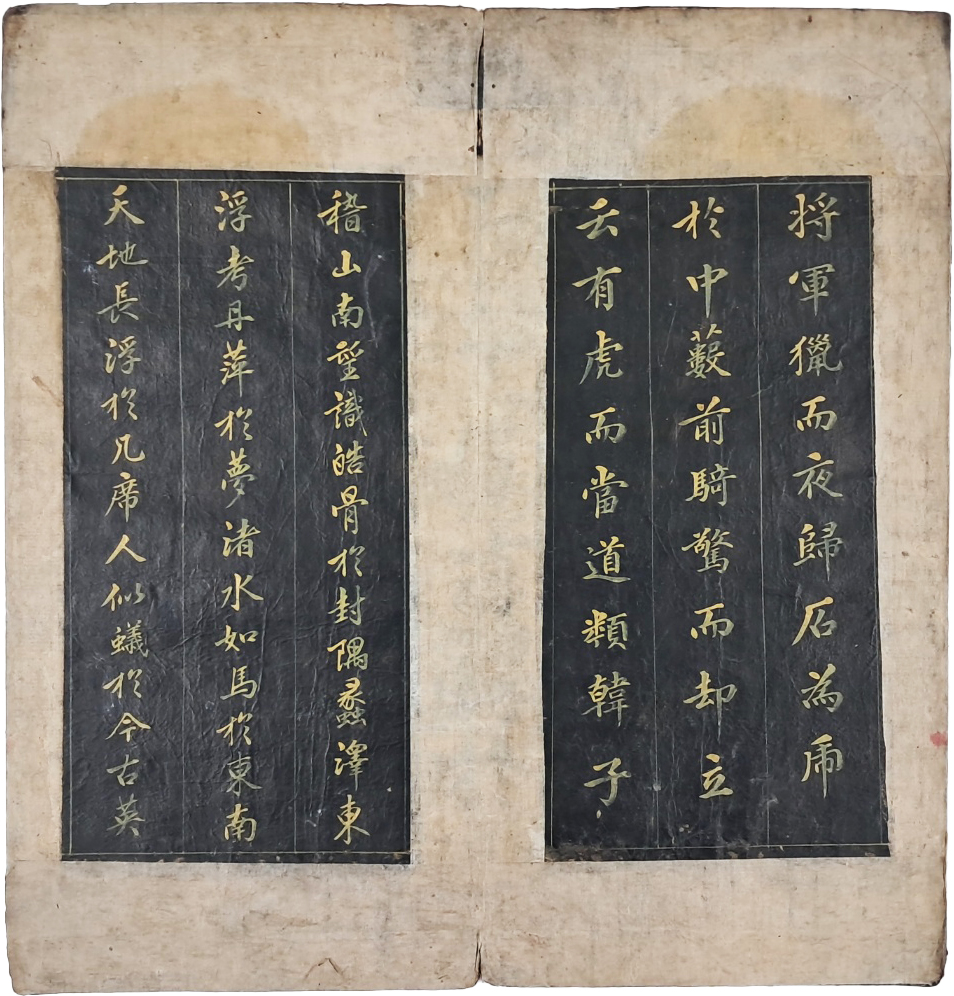 将軍獵而夜歸石為虎
於中藪前騎驚而却立
云有虎而當道類韓子
稽山南望識皓骨於封隅蠡澤東
浮考丹萍於夢渚水如馬於東南
天地長浮於几席人似蟻於今古英